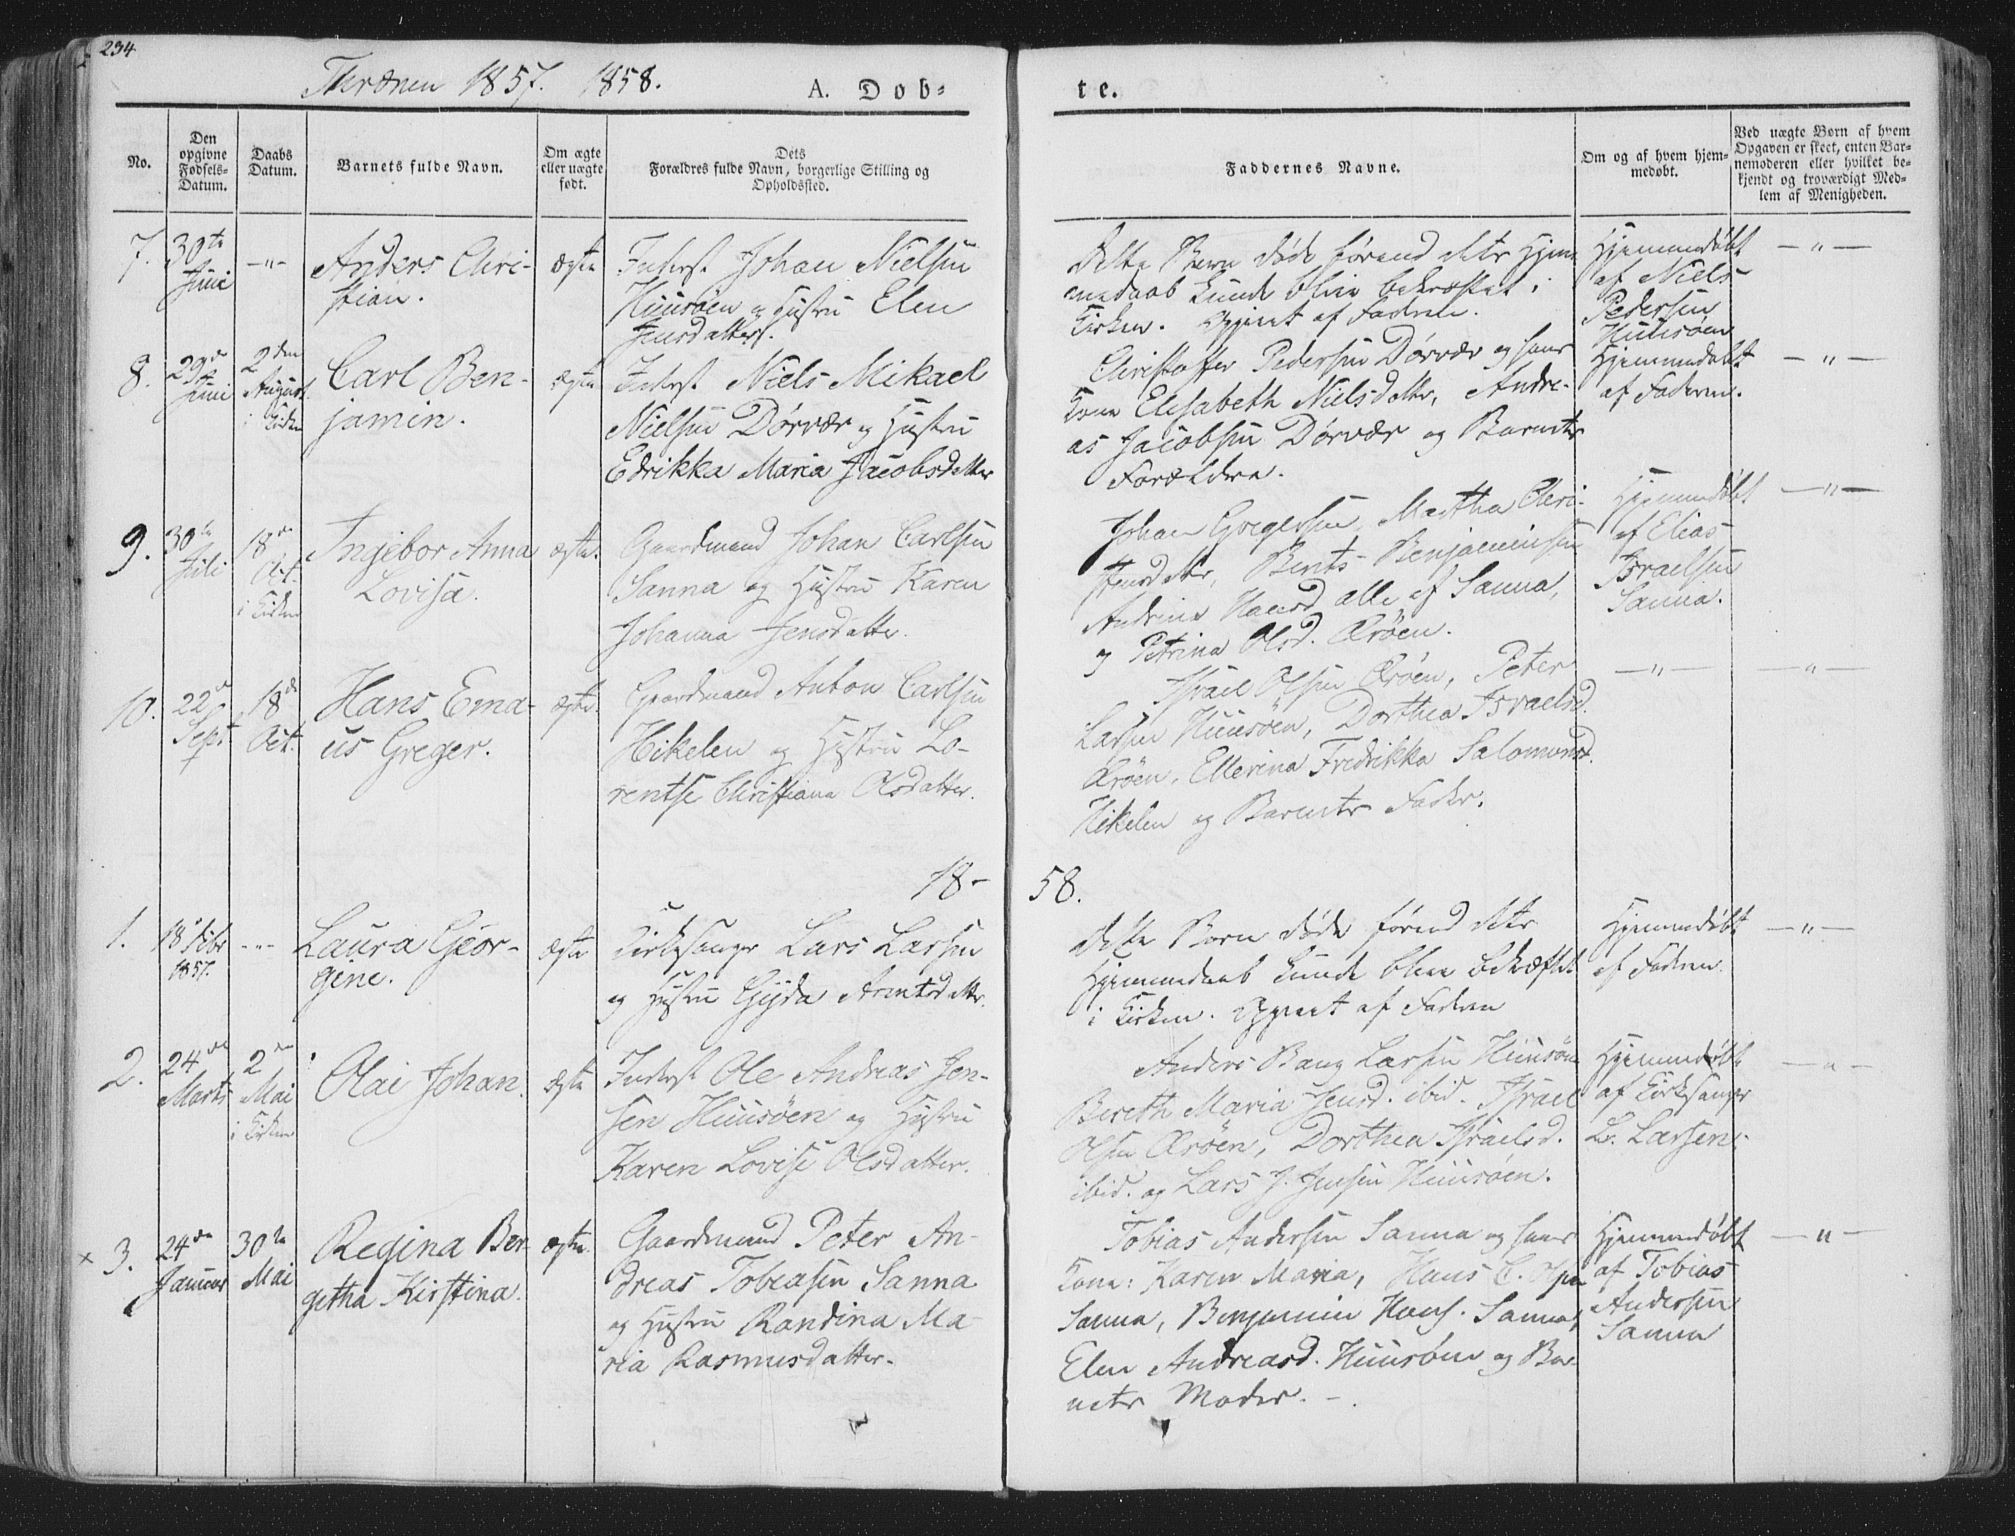 234
Thrænen 1857. 1858.
A. Døb-
te.
No.
Den
opgivne
Fødsels-
Datum.
Daabs
Datum.
Barnets fulde Navn.
Om ægte
eller uægte
født.
Dets
Forældres fulde Navn, borgerlige Stilling og
Opholdssted.
Faddernes Navne.
Om og af hvem hjem-
medøbt.
Ved uægte Børn af hvem
Opgaven er skeet, enten Bar-
nemoderen eller hvilket be-
kjendt og troværdigt Med-
lem af Menigheden.
7.
30te
Juni
—"—
Anders Chri-
stian.
ægte
Inderst Johan Nielsen
Huusøen og Hustru Elen
Jensdatter.
Dette Barn døde førend dets Hjem-
medaab kunde blive bekræftet i
Kirken. Opgivet af Faderen.
Hjemmedøbt
af Niels
Pedersen
Huusøen
—"—
8.
29de
Juni
2den
August
i Kirken
Carl Ben-
jamin.
ægte
Inderst Niels Mikael
Nielsen Dørvær og Hustru
Edrikka Maria Jacobsdatter
Christoffer Pedersen Dørvær og hans
Kone Elisabeth Nielsdatter, Andre-
as Jacobsen Dørvær og Barnets
Forældre.
Hjemmedøbt
af Faderen.
—"—
9.
30te
Juli
18de
Oct.
i Kirken
Ingebor Anna
Lovisa.
ægte.
Gaardmand Johan Carlsen
Sanna og Hustru Karen
Johanna Jensdatter.
Johan Gregersen, Martha Chri-
stensdatter, Bents Benjaminsen
Andrina Hansd. alle af Sanna,
og Petrina Olsd. Ørøen.
Hjemmedøbt
af Elias
Israelsen
Sanna.
—"—
10.
22de
Sept
18de
Oct.
Hans Ema-
us Greger.
ægte.
Gaardmand Anton Carlsen
Hikelen og Hustru Lo-
rentse Christiana Olsdatter.
Israel Olsen Ørøen, Peter
Larsen Huusøen, Dorthea Israelsd.
Ørøen, Ellerina Fredrikka Salomonsd.
Hikelen og Barnets Fader.
—"—
—"—
18-
58.
1.
18de Febr
1857.
-"-
Laura Geor-
gine.
ægte
Kirkesanger Lars Larsen
og Hustru Gyda Arentsdatter.
Dette Barn døde førend dets
Hjemmedaab kunde blive bekræftet
i Kirken. Opgivet af Faderen
Hjemmedøbt
af Faderen.
—"—
2.
24de
Marts
2den
Mai
i Kirken
Olai Johan.
ægte
Inderst Ole Andreas Jen-
sen Huusøen og Hustru
Karen Lovise Olsdatter.
Anders Bang Larsen Huusøen
Bereth Maria Jensd. ibid. Israel
Olsen Ørøen, Dorthea Israelsd.
ibid. og Lars J. Jensen Huusøen.
Hjemmedøbt
af Kirkesanger
L. Larsen.
—"—
× 3.
24de
Januar
30te
Mai
Regina Ber-
getha Kirstina.
ægte.
Gaardmand Peter An-
dreas Tobiasen Sanna
og Hustru Randina Ma-
ria Rasmusdatter.
Tobias Andersen Sanna og hans
Kone: Karen Maria, Hans C. Olsen
Sanna, Benjamin Hans. Sanna,
Elen Andreasd. Huusøen og Bar-
nets Moder. -
Hjemmedøbt
af Tobias
Andersen
Sanna
—"—